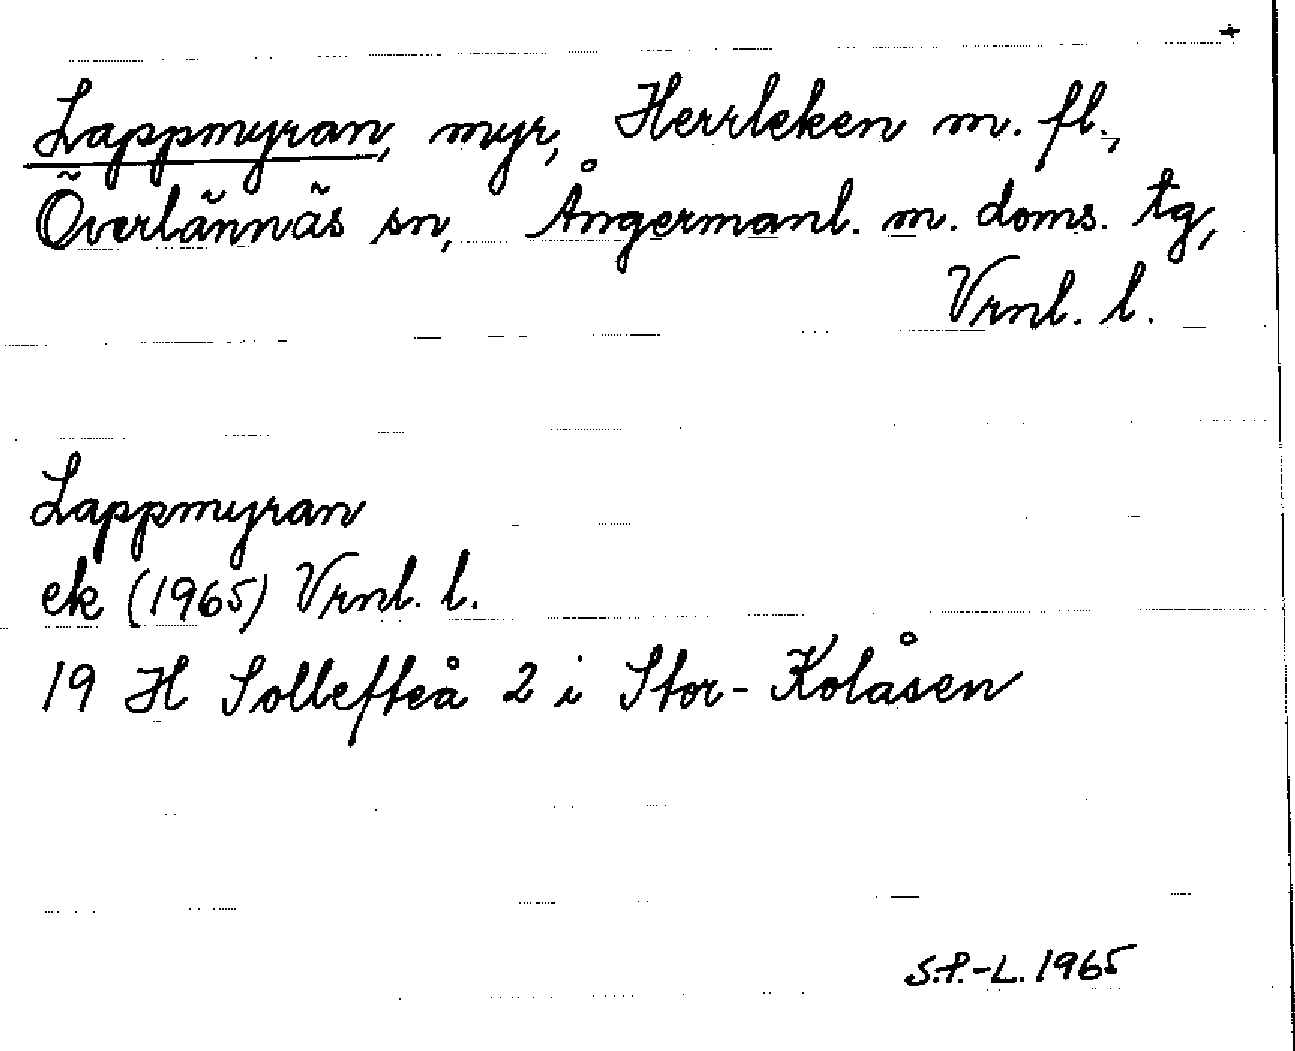 +
Lappmyran, myr, Herrleken m. fl.,
Överlännäs sn, Ångermanl. m. doms. tg,
Vrnl. l.
Lappmyran
ek (1965) Vrnl. l.
19 H Sollefteå 2 i Stor-Kolåsen
S.P.-L. 1965